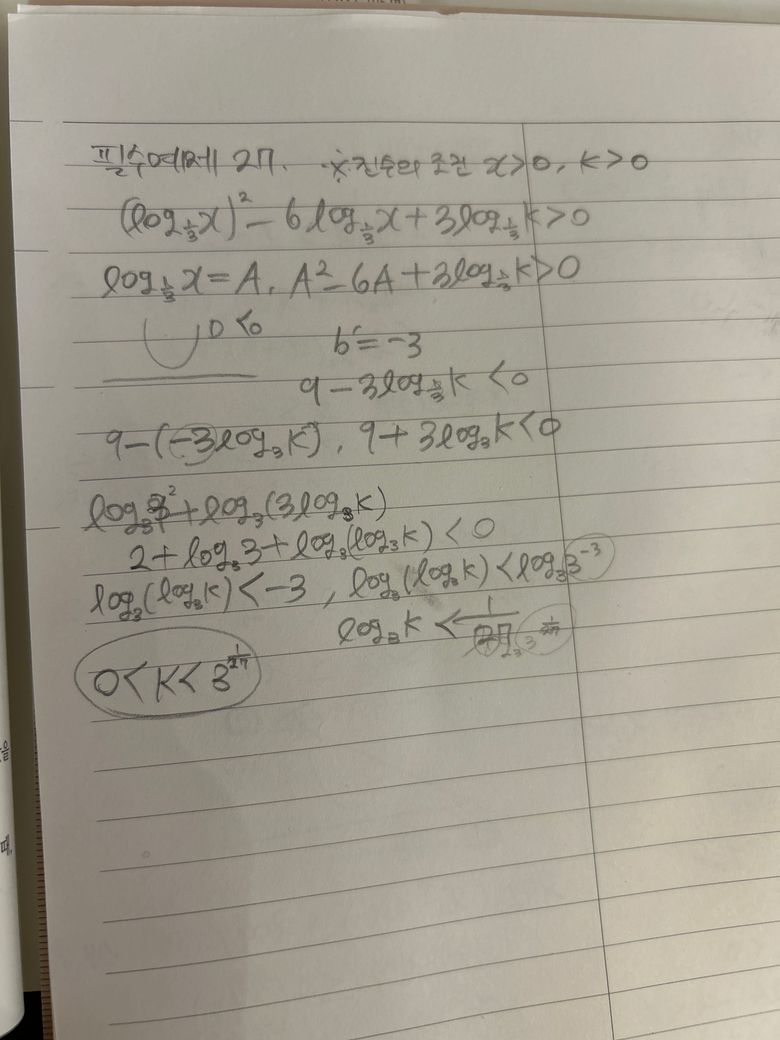 필수예제 27. ※진수의 조건 x>0, k>0
(log_{1/3}x)² - 6log_{1/3}x + 3log_{1/3}k > 0
log_{1/3}x = A, A² - 6A + 3log_{1/3}k > 0
D < 0
b' = -3
9 - 3log_{1/3}k < 0
9 - (-3log₃k), 9 + 3log₃k < 0
log₃3² + log₃(3log₃k)
2 + log₃3 + log₃(log₃k) < 0
log₃(log₃k) < -3, log₃(log₃k) < log₃3⁻³
log₃k < 1/27
0 < k < 3^{1/27}
을
때,